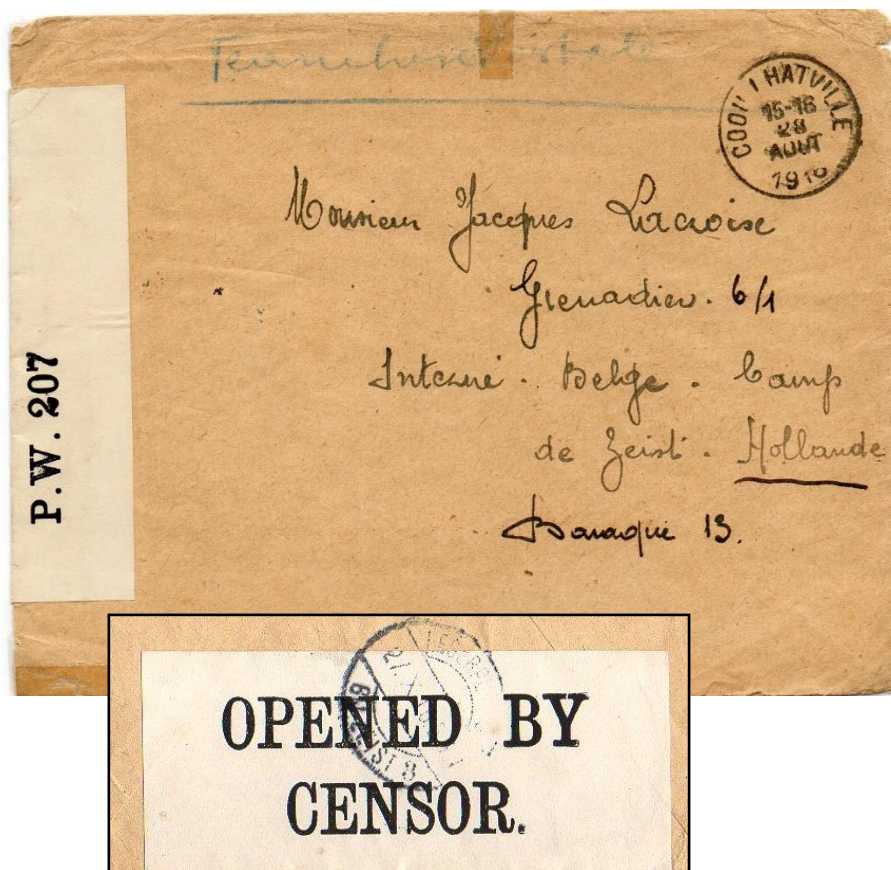 Franchise Postale
COQUILHATVILLE
15-16
28
AOUT
1916
Monsieur Jacques Lacroise
Grenadier. 6/1
Interné. Belge. Camp
de Zeist. Hollande
Baraque 13.
P.W. 207
OPENED BY
CENSOR.